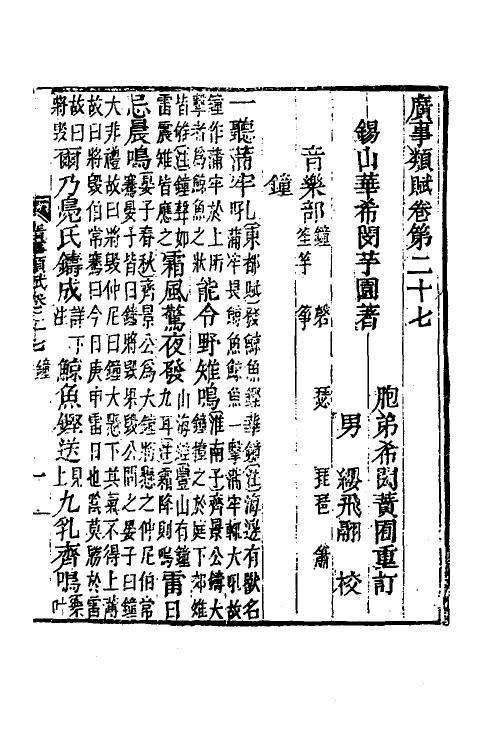 廣事類賦卷第二十七
錫山華希閔芋園著
胞弟希閎黃圃重訂
男 纓飛翮 校
音樂部鐘 磬 瑟 琵琶 簫 笙竽 箏
鐘
一聽蒲牢吼東都賦發鯨魚鏗華鐘注海邊有獸名
蒲牢畏鯨魚鯨魚一擊蒲牢輒大吼故
鐘作蒲牢於上所
擊者爲鯨魚之狀能令野雉鳴淮南子齊景公鑄大
鐘撞之於庭下郊雉
皆雊注鐘聲如
雷震雉皆應之霜風驚夜發山海經豐山有鐘
九耳注霜降則鳴雷日
忌晨鳴晏子春秋齊景公爲大鐘將懸之仲尼伯常
騫晏子皆曰鐘將毀果毀公問之晏子曰鐘
大非禮故曰將毀仲尼曰鐘大懸下其氣不得上薄
故曰將毀伯常騫曰今日庚申雷日也當莫勝於雷
故曰
將毀爾乃鳧氏鑄成詳下
注鯨魚鏗送見
上九乳齊鳴樂
叶
廣事類賦卷二十七 鐘 一